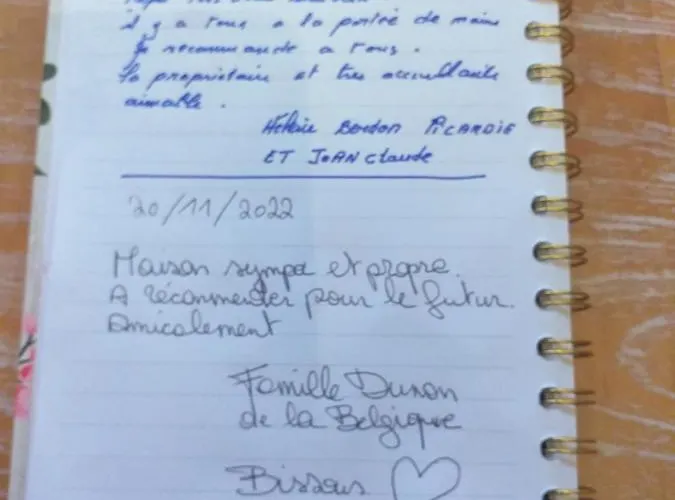 il y a tous a la portée de mains
je recommande a tous.
la propriétaire et tres accueillante
aimable.
Bordon PICARDIE
ET JEAN Claude
20/11/2022
Maison sympa et propre.
A récommender pour le futur.
Amicalement
Famille
de la Belgique
Bissous